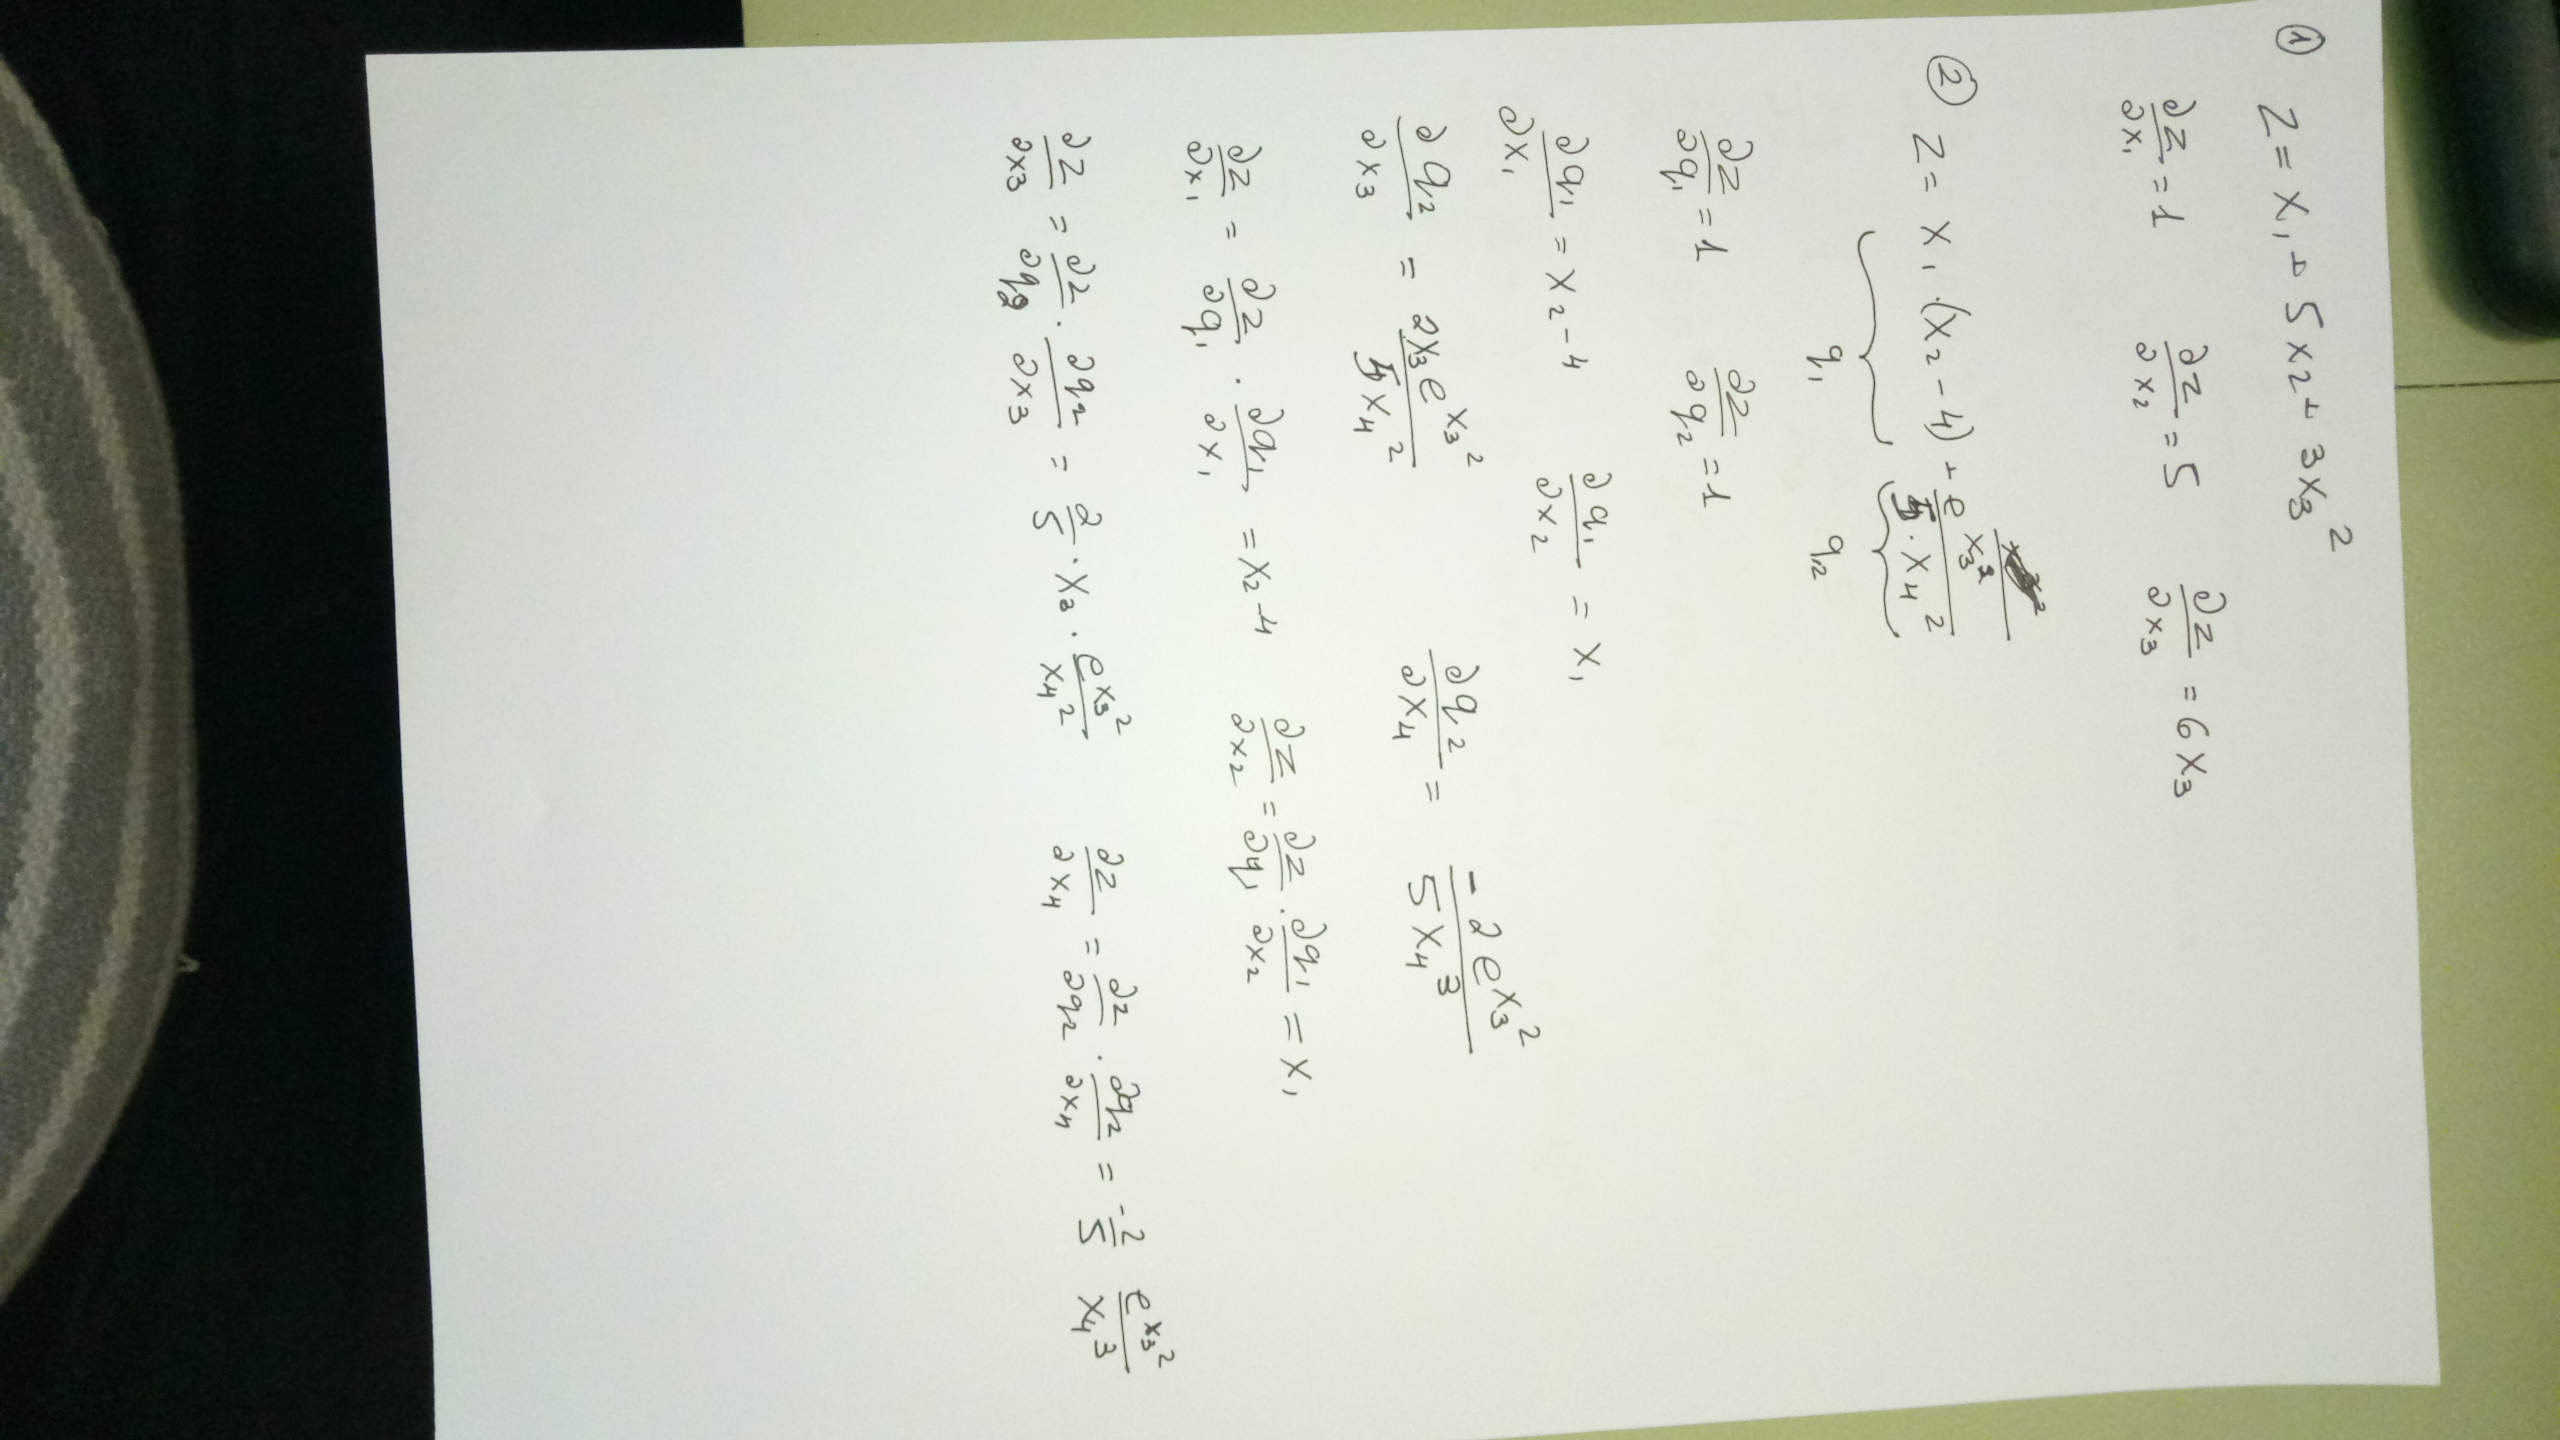 ① z = x₁ + 5x₂ + 3x₃²
∂z/∂x₁ = 1 ∂z/∂x₂ = 5 ∂z/∂x₃ = 6x₃
② z = x₁ · (x₂ - 4) + e^(x₃²)/(5 · x₄²)
q₁ q₂
∂z/∂q₁ = 1 ∂z/∂q₂ = 1
∂q₁/∂x₁ = x₂ - 4 ∂q₁/∂x₂ = x₁
∂q₂/∂x₃ = 2x₃e^(x₃²)/(5x₄²) ∂q₂/∂x₄ = -2e^(x₃²)/(5x₄³)
∂z/∂x₁ = ∂z/∂q₁ · ∂q₁/∂x₁ = x₂ - 4 ∂z/∂x₂ = ∂z/∂q₁ · ∂q₁/∂x₂ = x₁
∂z/∂x₃ = ∂z/∂q₂ · ∂q₂/∂x₃ = 2/5 · x₃ · e^(x₃²)/x₄² ∂z/∂x₄ = ∂z/∂q₂ · ∂q₂/∂x₄ = -2/5 e^(x₃²)/x₄³